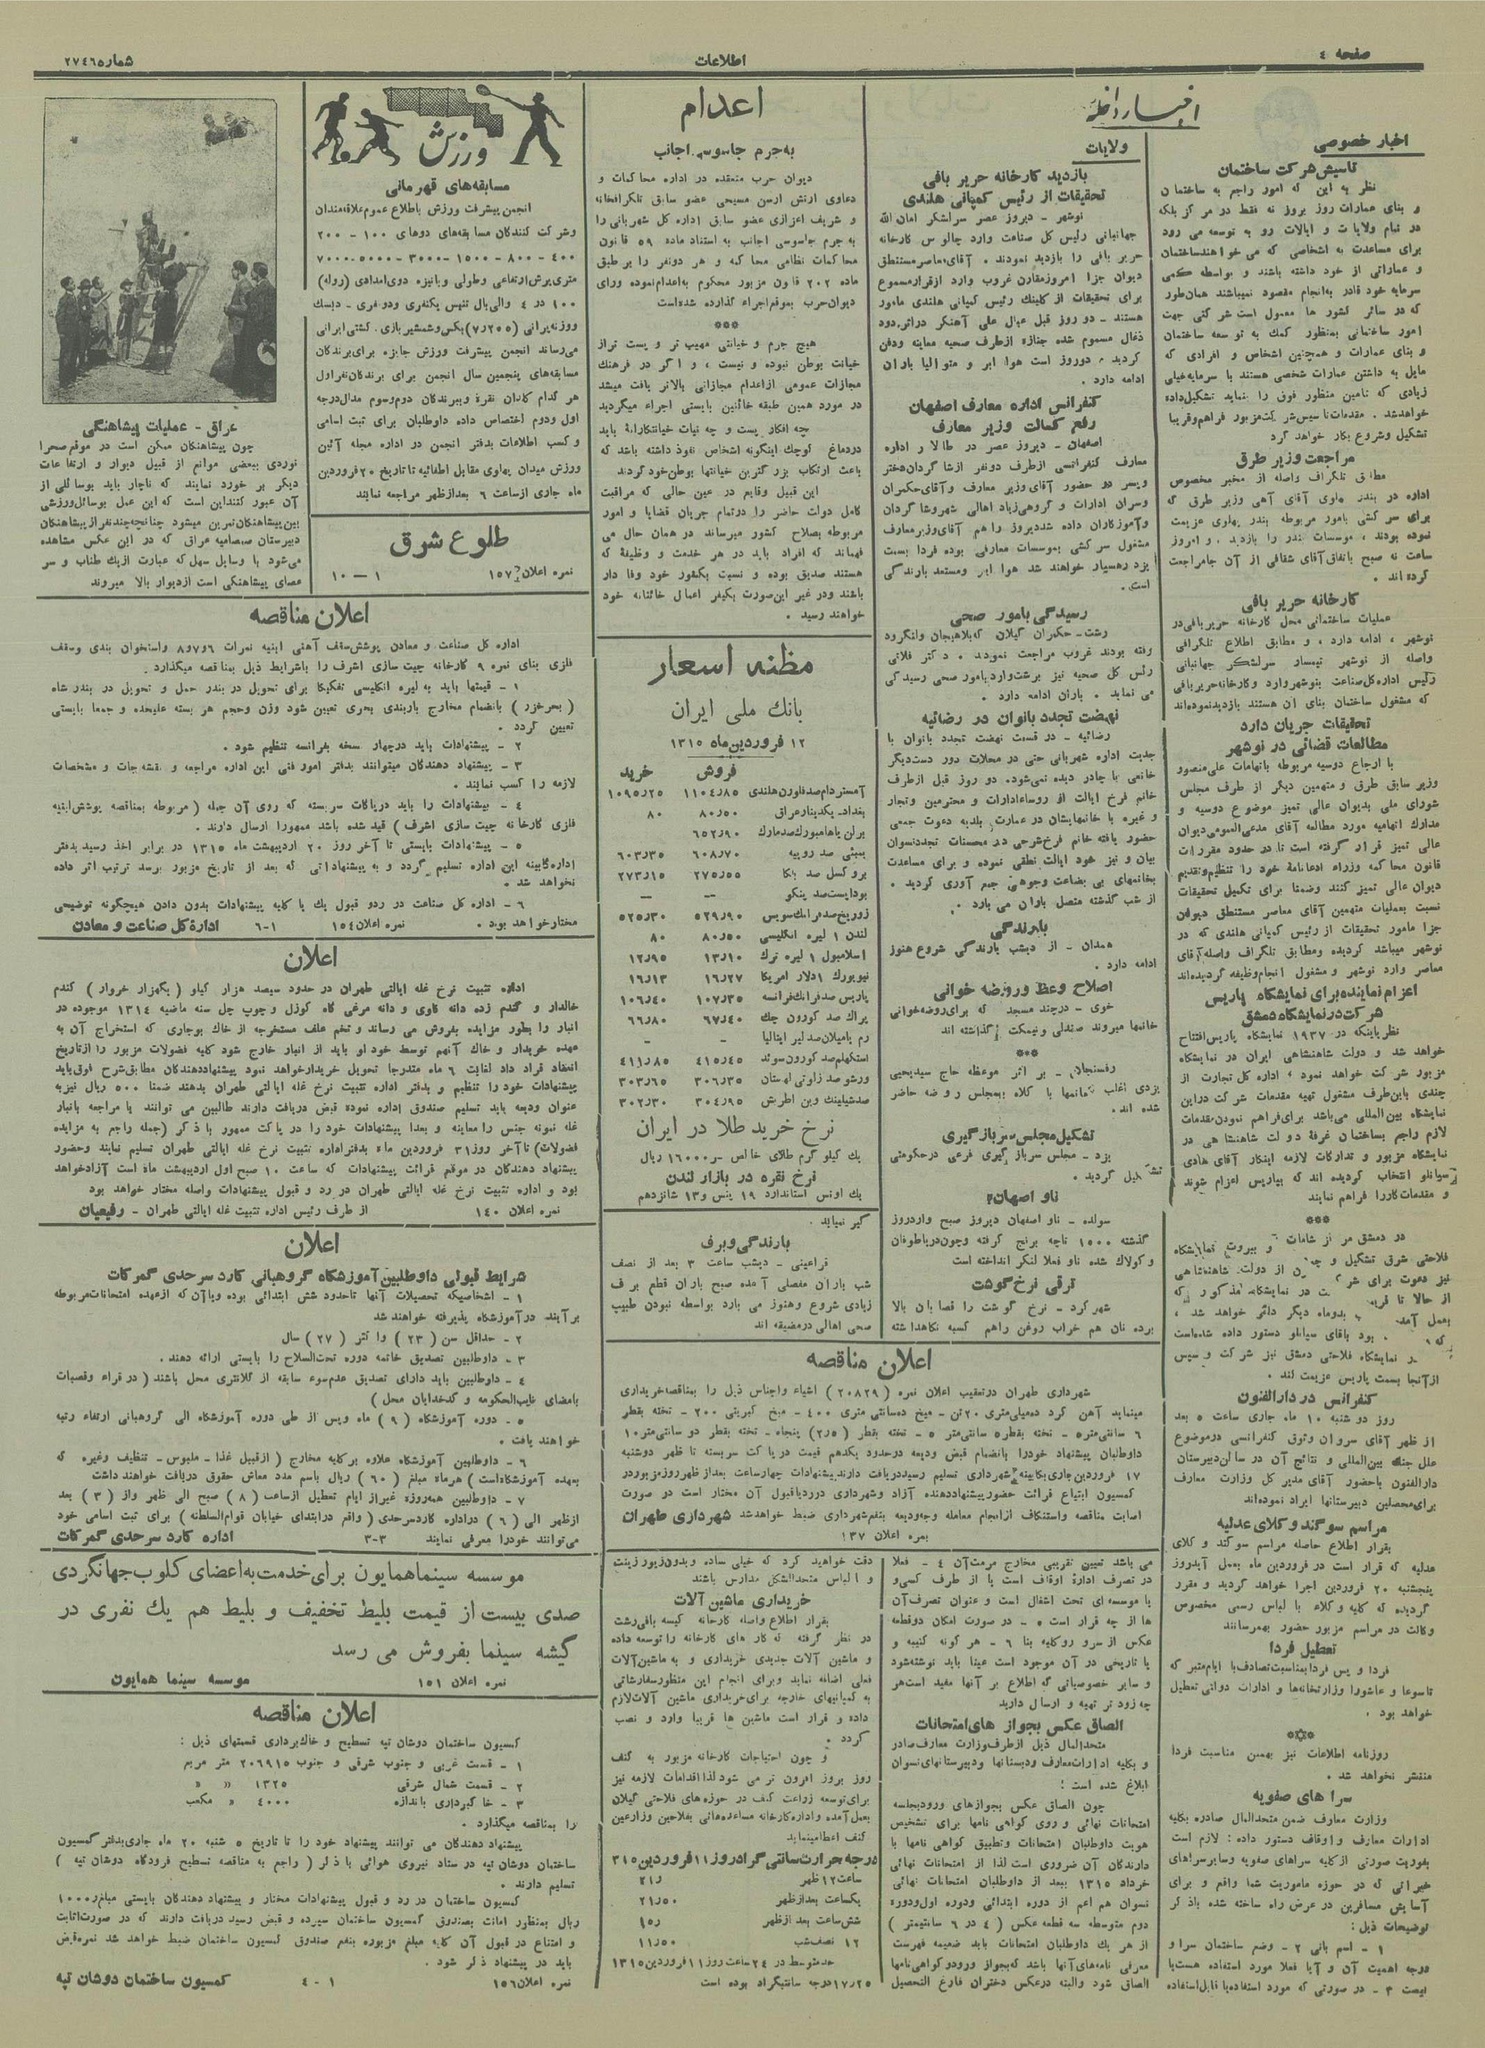 صفحه ٤
اطلاعات
شماره ٢٧٤٦
اخبار داخله
اخبار خصوصی
تاسیس شرکت ساختمان
نظر به این که امور راجع به ساختمان
و بنای عمارات روز بروز نه فقط در مرکز بلکه
در تمام ولایات و ایالات رو به توسعه می رود
برای مساعدت به اشخاصی که می خواهند ساختمان
و عماراتی از خود داشته باشند و بواسطه کمی
سرمایه خود قادر به انجام مقصود نمیباشند همان طور
که در سائر کشور ها معمول است شرکتی جهت
امور ساختمانی بمنظور کمک به توسعه ساختمان
و بنای عمارات و همچنین اشخاص و افرادی که
مایل به داشتن عمارات شخصی هستند با سرمایه خیلی
زیادی که تامین منظور فوق را بنماید تشکیل داده
خواهد شد . مقدمات تاسیس شرکت مزبور فراهم و قریبا
تشکیل و شروع بکار خواهد کرد
مراجعت وزیر طرق
مطابق تلگراف واصله از مخبر مخصوص
اداره در بندر پهلوی آقای آهی وزیر طرق که
برای سرکشی بامور مربوطه بندر پهلوی عزیمت
نموده بودند ، موسسات بندر را بازدید و امروز
ساعت نه صبح باتفاق آقای شقاقی از آن جا مراجعت
کرده اند .
کارخانه حریر بافی
عملیات ساختمانی محل کارخانه حریر بافی در
نوشهر ، ادامه دارد ، و مطابق اطلاع تلگرافی
واصله از نوشهر تیمسار سرلشگر جهانبانی
رئیس اداره کل صناعت بنوشهر وارد و کارخانه حریر بافی
که مشغول ساختمان بنای آن هستند بازدید نموده اند
تحقیقات جریان دارد
مطالعات قضائی در نوشهر
با ارجاع دوسیه مربوطه باتهامات علی منصور
وزیر سابق طرق و متهمین دیگر از طرف مجلس
شورای ملی بدیوان عالی تمیز موضوع دوسیه و
مدارک اتهامیه مورد مطالعه آقای مدعی العمومی دیوان
عالی تمیز قرار گرفته است تا در حدود مقررات
قانون محاکمه وزراء ادعانامه خود را تنظیم و تقدیم
دیوان عالی تمیز کنند وضمنا برای تکمیل تحقیقات
نسبت بعملیات متهمین آقای معاصر مستنطق دیوان
جزا مامور تحقیقات از رئیس کمپانی هلندی که در
نوشهر میباشد گردیده ومطابق تلگراف واصله آقای
معاصر وارد نوشهر و مشغول انجام وظیفه گردیده اند
اعزام نماینده برای نمایشگاه پاریس
شرکت در نمایشگاه دمشق
نظر باینکه در ١٩٣٧ نمایشگاه پاریس افتتاح
خواهد شد و دولت شاهنشاهی ایران در نمایشگاه
مزبور شرکت خواهد نمود ، اداره کل تجارت از
چندی باین طرف مشغول تهیه مقدمات شرکت در این
نمایشگاه بین المللی می باشد برای فراهم نمودن مقدمات
لازم راجع بساختمان غرفه دولت شاهنشاهی در
نمایشگاه مزبور و تدارکات لازمه اینکار آقای هادی
سیانلو انتخاب گردیده اند که بپاریس اعزام شوند
و مقدمات کار را فراهم نمایند
***
فلاحتی شرق تشکیل و
کنفرانس در دارالفنون
روز دو شنبه ١٠ ماه جاری ساعت ٥ بعد
از ظهر آقای سروان وثوق کنفرانسی در موضوع
علل جنگ بین المللی و نتائج آن در سالن دبیرستان
دارالفنون با حضور آقای مدیر کل وزارت معارف
برای محصلین دبیرستانها ایراد نموده اند
مراسم سوگند وکلای عدلیه
بقرار اطلاع حاصله مراسم سوگند و کلای
عدلیه که قرار است در فروردین ماه بعمل آید روز
پنجشنبه ٢٠ فروردین اجرا خواهد گردید و مقرر
گردیده که کلیه وکلاء با لباس رسمی مخصوص
وکالت در مراسم مزبور حضور بهمرسانند
تعطیل فردا
فردا و پس فردا بمناسبت تصادف با ایام متبر که
تاسوعا و عاشورا وزارتخانه ها و ادارات دولتی تعطیل
خواهد بود .
روزنامه اطلاعات نیز بهمین مناسبت فردا
منتشر نخواهد شد .
سرا های صفویه
وزارت معارف ضمن متحدالمال صادره بکلیه
ادارات معارف و اوقاف دستور داده : لازم است
بفوریت صورتی از کلیه سراهای صفویه و سایر سراهای
خیراتی که در حوزه ماموریت شما واقع و برای
آسایش مسافرین در عرض راه ساخته شده باذکر
توضیحات ذیل :
١ – اسم بانی ٢ – وضع ساختمان سرا و
درجه اهمیت آن و آیا فعلا مورد استفاده هست یا
نیست ٣ – در صورتی که مورد استفاده یا قابل استفاده
ولایات
بازدید کارخانه حریر بافی
تحقیقات از رئیس کمپانی هلندی
نوشهر – دیروز عصر سرلشگر امان الله
جهانبانی رئیس کل صناعت وارد چالوس کارخانه
حریر بافی را بازدید نمودند . آقای معاصر مستنطق
دیوان جزا امروز مقارن غروب وارد از قرار مسموع
برای تحقیقات از رئیس کمپانی هلندی مامور
هستند – دو روز قبل عیال علی آهنگر در اثر دود
ذغال مسموم شده جنازه از طرف صحیه معاینه و دفن
گردید . دو روز است هوا ابر و متوالیا باران
ادامه دارد .
کنفرانس اداره معارف اصفهان
رفع کسالت وزیر معارف
اصفهان – دیروز عصر در طالار اداره
معارف کنفرانسی از طرف دو نفر از شاگردان دختر
و پسر در حضور آقای وزیر معارف و آقای حکمران
وسران ادارات و گروهی زیاد اهالی شهر و شاگردان
و آموزگاران داده شد دیروز را هم آقای وزیر معارف
مشغول سرکشی بموسسات معارفی بوده فردا بسمت
یزد رهسپار خواهند شد هوا ابر و مستعد بارندگی
است .
رسیدگی بامور صحی
رشت – حکمران گیلان که بلاهیجان و لنگرود
رفته بودند غروب مراجعت نمودند . دکتر فلاتی
رئیس کل صحیه نیز برشت وارد بامور صحی رسیدگی
می نماید . باران ادامه دارد .
نهضت تجدد بانوان در رضائیه
رضائیه – در قسمت نهضت تجدد بانوان با
جدیت اداره شهربانی حتی در محلات دور دست دیگر
خانمی با چادر دیده نمی شود . دو روز قبل از طرف
خانم فرخ ایالت از روساء ادارات و محترمین و تجار
و غیره با خانمهایشان در عمارت بلدیه دعوت جمعی
حضور یافته خانم فرخ شرحی در محسنات تجدد نسوان
بیان و نیز خود ایالت نطقی نموده و برای مساعدت
بخانمهای بی بضاعت وجوهی جمع آوری گردید .
از شب گذشته متصل باران می بارد .
بارندگی
همدان – از دیشب بارندگی شروع هنوز
ادامه دارد .
اصلاح وعظ وروضه خوانی
خوی – در چند مسجد که برای روضه خوانی
خانمها میروند صندلی و نیمکت گذاشته اند
**
رفسنجان – بر اثر موعظه حاج سید یحیی
یزدی اغلب خانمها با کلاه بمجلس روضه حاضر
شده اند .
تشکیل مجلس سربازگیری
یزد – مجلس سربازگیری فرعی در حکومتی
تشکیل گردید .
ناو اصفهان
سولده – ناو اصفهان دیروز صبح وارد روز
گذشته ١٥٠٠ تاچه برنج گرفته وچون دریا طوفان
و کولاک شده ناو فعلا لنگر انداخته است
ترقی نرخ گوشت
شهرکرد – نرخ گوشت را قصابان بالا
برده نان هم خراب روغن راهم کسبه نگاهداشته
اعدام
به جرم جاسوسی اجانب
دیوان حرب منعقده در اداره محاکمات و
دعاوی ارتش ارسن مسیحی عضو سابق تلگرافخانه
و شریف اعزازی عضو سابق اداره کل شهربانی را
به جرم جاسوسی اجانب به استناد ماده ٥٩ قانون
محاکمات نظامی محاکمه و هر دو نفر را بر طبق
ماده ٢٠٢ قانون مزبور محکوم به اعدام نموده ورای
دیوان حرب بموقع اجراء گذارده شده است
***
هیچ جرم و خیانتی مهیب تر و پست تر از
خیانت بوطن نبوده و نیست ، و اگر در فرهنگ
مجازات عمومی از اعدام مجازاتی بالاتر یافت میشد
در مورد همین طبقه خائنین بایستی اجراء میگردید
چه افکار پست و چه نیات خیانتکارانۀ باید
در دماغ کوچک اینگونه اشخاص نفوذ داشته باشد که
باعث ارتکاب بزرگترین خیانتها بوطن خود گردند
این قبیل وقایع در عین حالی که مراقبت
کامل دولت حاضر را در تمام جریان قضایا و امور
مربوطه بصلاح کشور میرساند در همان حال می
فهماند که افراد باید در هر خدمت و وظیفۀ که
هستند صدیق بوده و نسبت بکشور خود وفا دار
باشند و در غیر این صورت بکیفر اعمال خائنانه خود
خواهند رسید .
مظنه اسعار
بانک ملی ایران
١٢ فروردین ماه ١٣١٥
فروش خرید
آمستردام صد فلورن هلندی ١١٠٤٫٨٥ ١٠٩٥٫٢٥
بغداد یکدینار عراق ٨٠٫٥٠ ٨٠
برلن یا هامبورک صد مارک ٦٥٢٫٩٠
بمبئی صد روپیه ٦٠٨٫٧٠ ٦٠٣٫٣٥
بروکسل صد بلگا ٢٧٥٫٥٥ ٢٧٣٫١٥
بوداپست صد پنگو — —
زوریخ صد فرانک سویس ٥٢٩٫٩٠ ٥٢٥٫٣٠
لندن ١ لیره انگلیسی ٨٠٫٥٠ ٨٠
اسلامبول ١ لیره ترک ١٣٫١٠ ١٢٫٩٥
نیویورک ١ دلار امریکا ١٦٫٢٧ ١٦٫١٣
پاریس صد فرانک فرانسه ١٠٧٫٣٥ ١٠٦٫٤٠
پراک صد کورون چک ٦٧٫٤٠ ٦٦٫٨٠
رم یا میلان صد لیر ایتالیا – –
استکهلم صد کورون سوئد ٤١٥٫٤٥ ٤١١٫٨٥
ورشو صد زلوتی لهستان ٣٠٦٫٣٥ ٣٠٣٫٦٥
صد شیلینک وین اطریش ٣٠٤٫٩٥ ٣٠٢٫٣٠
نرخ خرید طلا در ایران
یک کیلو گرم طلای خالص ١٦٠٠٠ ریال
نرخ نقره در بازار لندن
یک اونس استاندارد ١٩ پنس و ١٣ شانزدهم
گیر نمیاید .
بارندگی و برف
دیشب ساعت ٣ بعد از نصف
شب باران مفصلی آمده صبح باران قطع برف
زیادی شروع وهنوز می بارد بواسطه نبودن طبیب
صحی اهالی در مضیقه اند
اعلان مناقصه
شهرداری طهران در تعقیب اعلان نمره (٢٠٨٢٩) اشیاء واجناس ذیل را بمناقصه خریداری
مینماید آهن گرد ده میلیمتری ٢٠ تن – میخ ده سانتی متری ٤٠٠ – میخ کبریتی ٢٠٠ – تخته بقطر
٦ سانتی متر ٥ – تخته بقطر ٥ سانتی متر ٥ – تخته بقطر (٢٫٥) پنجاه – تخته بقطر دو سانتی متر ١٠
داوطلبان پیشنهاد خود را بانضمام قبض ودیعه در حدود یکدهم قیمت در پاکت سربسته تا ظهر دوشنبه
١٧ فروردین جاری بکابینه شهرداری تسلیم رسید دریافت دارند پیشنهادات چهار ساعت بعد از ظهر روز مزبور در
کمسیون ابتیاع قرائت حضور پیشنهاد دهنده آزاد و شهرداری در رد یا قبول آن مختار است در صورت
اصابت مناقصه و استنکاف از انجام معامله وجه ودیعه بنفع شهرداری ضبط خواهد شد شهرداری طهران
نمره اعلان ١٣٧
می باشد تعیین تقریبی مخارج مرمت آن ٤ – فعلا
در تصرف ادارۀ اوقاف است یا از طرف کسی و
یا موسسه ای تحت اشغال است و عنوان تصرف آن
ها از چه قرار است ٥ – در صورت امکان دو قطعه
عکس از سرو رو کلیه بنا ٦ – هر گونه کتیبه و
یا تاریخی در آن موجود است عینا باید نوشته شود
و سایر خصوصیاتی که اطلاع بر آنها مفید است هر
چه زود تر تهیه و ارسال دارید
الصاق عکس بجواز های امتحانات
متحدالمال ذیل از طرف وزارت معارف صادر
و بکلیه ادارات معارف و دبستانها و دبیرستانهای نسوان
ابلاغ شده است :
چون الصاق عکس بجوازهای ورود بجلسه
امتحانات نهائی و روی گواهی نامها برای تشخیص
هویت داوطلبان امتحانات و تطبیق گواهی نامها با
دارندگان آن ضروری است لذا از امتحانات نهائی
خرداد ١٣١٥ ببعد از داوطلبان امتحانات نهائی
نسوان هم اعم از دوره ابتدائی و دوره اول و دوره
دوم متوسطه سه قطعه عکس ( ٤ در ٦ سانتیمتر )
از هر یک داوطلبان امتحانات باید ضمیمه فهرست
معرفی نامه های آنها باشد که بجواز ورود و گواهی نامها
الصاق شود والبته در عکس دختران فارغ التحصیل
دقت خواهید کرد که خیلی ساده و بدون زیور زینت
و با لباس متحدالشکل مدارس باشند
خریداری ماشین آلات
بقرار اطلاع واصله کارخانه کیسه بافی رشت
در نظر گرفته که کار های کارخانه را توسعه داده
و ماشین آلات جدیدی خریداری و به ماشین آلات
فعلی اضافه نماید و برای انجام این منظور سفارشاتی
به کمپانیهای خارجه برای خریداری ماشین آلات لازم
داده و قرار است ماشین ها قریبا وارد و نصب
گردد .
و چون احتیاجات کارخانه مزبور به کنف
روز بروز افزون تر می شود لذا اقدامات لازمه نیز
برای توسعه زراعت کنف در حوزه های فلاحتی گیلان
بعمل آمده و اداره کارخانه مساعده هائی بفلاحین وزارعین
کنف اعطا مینماید
درجه حرارت سانتی گراد روز ١١ فروردین ٣١٥
ساعت ١٢ ظهر ٢١٫
یکساعت بعد از ظهر ٢١٫٥٠
شش ساعت بعد از ظهر ١٥٫
١٢ نصف شب ١١٫٥٠
حد متوسط در ٢٤ ساعت روز ١١ فروردین ١٣١٥
١٧٫٢٥ درجه سانتیگراد بوده است
ورزش
مسابقه های قهرمانی
انجمن پیشرفت ورزش باطلاع عموم علاقه مندان
وشرکت کنندگان مسابقه های دوهای ١٠٠ – ٢٠٠
٤٠٠ – ٨٠٠ – ١٥٠٠ – ٣٠٠٠ – ٥٠٠٠ – ٧٠٠٠
متری پرش ارتفاعی وطولی و بانیزه دوی امدادی (رله)
١٠٠ در ٤ والی بال تنیس یکنفری و دو نفری – دیسک
وزنه پرانی (٧٫٢٥٥) بکس وشمشیر بازی . کشتی ایرانی
می رساند انجمن پیشرفت ورزش جایزه برای برندگان
مسابقه های پنجمین سال انجمن برای برندگان نفر اول
هر کدام گلدان نقره وببرندگان دوم و سوم مدال درجه
اول و دوم اختصاص داده داوطلبان برای ثبت اسامی
و کسب اطلاعات بدفتر انجمن در اداره مجله آئین
ورزش میدان پهلوی مقابل اطفائیه تا تاریخ ٢٠ فروردین
ماه جاری از ساعت ٦ بعد از ظهر مراجعه نمایند
طلوع شرق
نمره اعلان ١٥٧ ١ — ١٠
عراق – عملیات پیشاهنگی
چون پیشاهنگان ممکن است در موقع صحرا
نوردی ببعضی موانع از قبیل دیوار و ارتفاعات
دیگر بر خورد نمایند که ناچار باید بوسائلی از
آن عبور کنند این است که این عمل بوسائل ورزشی
بین پیشاهنگان تمرین میشود چنانچه چند نفر از پیشاهنگان
دبیرستان صمصامیه عراق که در این عکس مشاهده
می شود با وسایل سهل که عبارت از یک طناب و سر
عصای پیشاهنگی است از دیوار بالا میروند
اعلان مناقصه
اداره کل صناعت و معادن پوشش سقف آهنی ابنیه نمرات ٦و٧و٨ واستخوان بندی وسقف
فلزی بنای نمره ٩ کارخانه چیت سازی اشرف را باشرایط ذیل بمناقصه میگذارد .
١ – قیمتها باید به لیره انگلیسی تفکیکا برای تحویل در بندر حمل و تحویل در بندر شاه
( بحر خزر ) بانضمام مخارج باربندی بحری تعیین شود وزن وحجم هر بسته علیحده و جمعا بایستی
تعیین گردد .
٢ – پیشنهادات باید در چهار نسخه بفرانسه تنظیم شود .
٣ – پیشنهاد دهندگان میتوانند بدفتر امور فنی این اداره مراجعه و نقشه جات و مشخصات
لازمه را کسب نمایند .
٤ – پیشنهادات را باید در پاکات سربسته که روی آن جمله ( مربوطه بمناقصه پوشش ابنیه
فلزی کارخانه چیت سازی اشرف ) قید شده باشد ممهورا ارسال دارند .
٥ – پیشنهادات بایستی تا آخر روز ٢٠ اردیبهشت ماه ١٣١٥ در برابر اخذ رسید بدفتر
اداره کابینه این اداره تسلیم گردد و به پیشنهاداتی که بعد از تاریخ مزبور برسد ترتیب اثر داده
نخواهد شد .
٦ – اداره کل صناعت در رد و قبول یک یا کلیه پیشنهادات بدون دادن هیچگونه توضیحی
مختار خواهد بود . نمره اعلان ١٥٤ ١–٦ ادارۀ کل صناعت و معادن
اعلان
اداره تثبیت نرخ غله ایالتی طهران در حدود سیصد هزار کیلو ( یکهزار خروار ) گندم
خالدار و گندم زده دانه کاوی و دانه مرغی کاه کوزل و چوب چل سنه ماضیه ١٣١٤ موجوده در
انبار را بطور مزایده بفروش می رساند و تخم علف مستخرجه از خاک بوجاری که استخراج آن به
عهده خریدار و خاک آنهم توسط خود او باید از انبار خارج شود کلیه فضولات مزبور را از تاریخ
انعقاد قرار داد لغایت ٦ ماه متدرجا تحویل خریدار خواهد نمود پیشنهاد دهندگان مطابق شرح فوق باید
پیشنهادات خود را تنظیم و بدفتر اداره تثبیت نرخ غله ایالتی طهران بدهند ضمنا ٥٠٠ ریال نیز به
عنوان ودیعه باید تسلیم صندوق اداره نموده قبض دریافت دارند طالبین می توانند با مراجعه بانبار
غله نمونه جنس را معاینه و بعدا پیشنهادات خود را در پاکت ممهور با ذکر (جمله راجع به مزایده
فضولات) تا آخر روز ٣١ فروردین ماه بدفتر اداره تثبیت نرخ غله ایالتی طهران تسلیم نمایند وحضور
پیشنهاد دهندگان در موقع قرائت پیشنهادات که ساعت ١٠ صبح اول اردیبهشت ماه است آزاد خواهد
بود و اداره تثبیت نرخ غله ایالتی طهران در رد و قبول پیشنهادات واصله مختار خواهد بود
نمره اعلان ١٤٠ از طرف رئیس اداره تثبیت غله ایالتی طهران – رفیعیان
اعلان
شرایط قبولی داوطلبین آموزشگاه گروهبانی گارد سرحدی گمرکات
١ – اشخاصیکه تحصیلات آنها تا حدود شش ابتدائی بوده ویا آن که از عهده امتحانات مربوطه
بر آیند در آموزشگاه پذیرفته خواهند شد
٢ – حداقل سن ( ٢٣ ) و اکثر ( ٢٧ ) سال
٣ – داوطلبین تصدیق خاتمه دوره تحت السلاح را بایستی ارائه دهند .
٤ – داوطلبین باید دارای تصدیق عدم سوء سابقه از کلانتری محل باشند ( در قراء وقصبات
بامضای نایب الحکومه و کدخدایان محل )
٥ – دوره آموزشگاه ( ٩ ) ماه و پس از طی دوره آموزشگاه الی گروهبانی ارتقاء رتبه
خواهند یافت .
٦ – داوطلبین آموزشگاه علاوه بر کلیه مخارج ( از قبیل غذا – ملبوس – تنظیف وغیره که
بعهده آموزشگاه است ) هر ماه مبلغ ( ٦٠ ) ریال باسم مدد معاش حقوق دریافت خواهند داشت
٧ – داوطلبین همه روزه غیر از ایام تعطیل از ساعت ( ٨ ) صبح الی ظهر واز ( ٣ ) بعد
از ظهر الی ( ٦ ) در اداره گارد سرحدی ( واقع در ابتدای خیابان قوام السلطنه ) برای ثبت اسامی خود
می توانند خود را معرفی نمایند ٣–٣ اداره گارد سرحدی گمرکات
موسسه سینما همایون برای خدمت به اعضای کلوب جهانگردی
صدی بیست از قیمت بلیط تخفیف و بلیط هم یک نفری در
گیشه سینما بفروش می رسد
نمره اعلان ١٥١ موسسه سینما همایون
اعلان مناقصه
کمسیون ساختمان دوشان تپه تسطیح و خاک برداری قسمتهای ذیل :
١ – قسمت غربی و جنوب شرقی و جنوب ٢٠٦٩١٥ متر مربع
٢ – قسمت شمال شرقی ١٣٢٥ « «
٣ – خاکبرداری باندازه ٤٠٠٠ « مکعب
را بمناقصه میگذارد .
پیشنهاد دهندگان می توانند پیشنهاد خود را تا تاریخ ٥ شنبه ٢٠ ماه جاری بدفتر کمسیون
ساختمان دوشان تپه در ستاد نیروی هوائی با ذکر ( راجع به مناقصه تسطیح فرودگاه دوشان تپه )
تسلیم دارند .
کمسیون ساختمان در رد و قبول پیشنهادات مختار و پیشنهاد دهندگان بایستی مبلغ ١٠٠٠
ریال بمنظور امانت بصندوق کمسیون ساختمان سپرده و قبض رسید دریافت دارند که در صورت اثابت
و امتناع در قبول آن کلیه مبلغ مزبوره بنفع صندوق کمسیون ساختمان ضبط خواهد شد نمره قبض
باید در پیشنهاد ذکر شود .
نمره اعلان ١٥٦ ١–٤ کمسیون ساختمان دوشان تپه